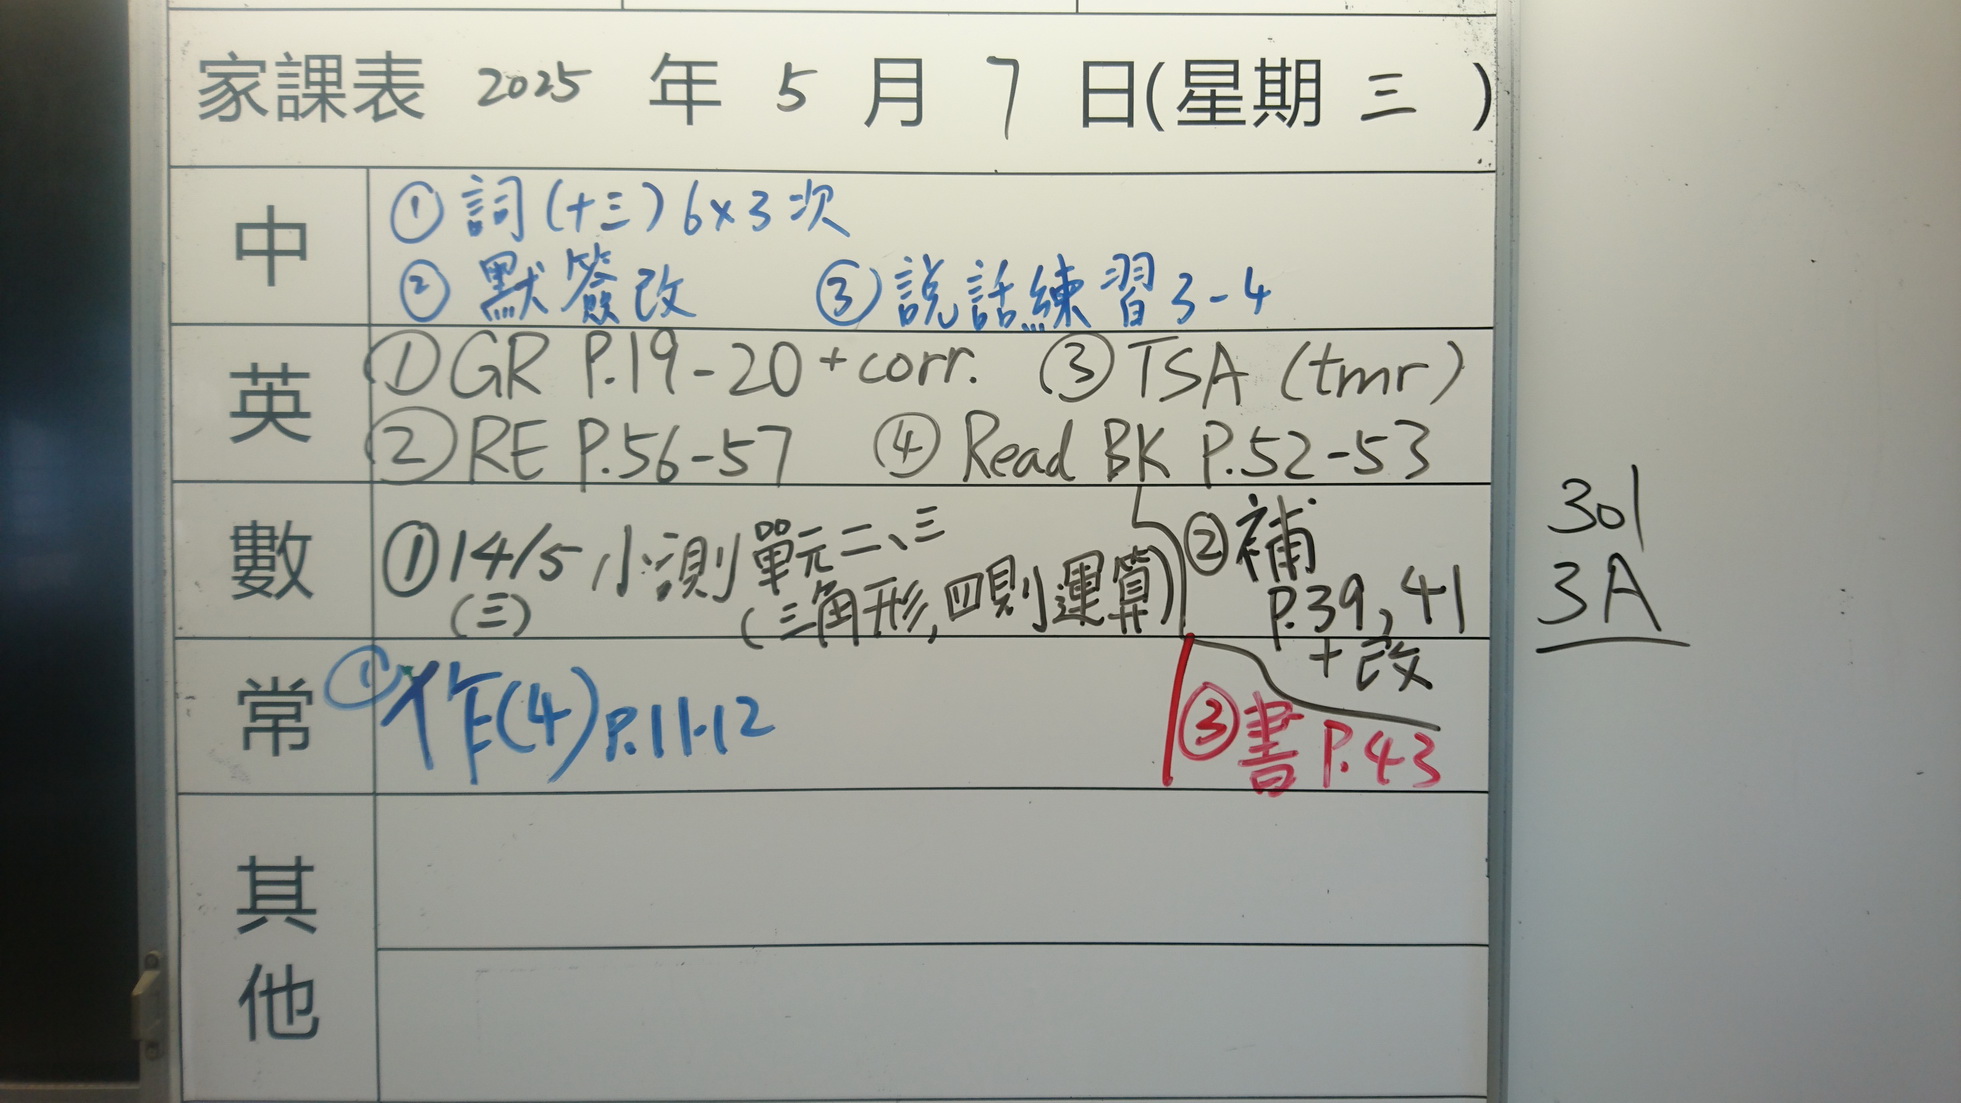 家課表 2025 年 5 月 7 日(星期 三 )
中
① 詞(十三)6×3次
② 默簽改 ③ 說話練習3-4
英
① GR P.19-20 + corr. ③ TSA (tmr)
② RE P.56-57 ④ Read BK P.52-53
數
① 14/5 小測 單元二、三
(三) (三角形,四則運算)
② 補
P.39, 41
+改
③ 書 P.43
常
① 作(4) P.11-12
其他
301
3A